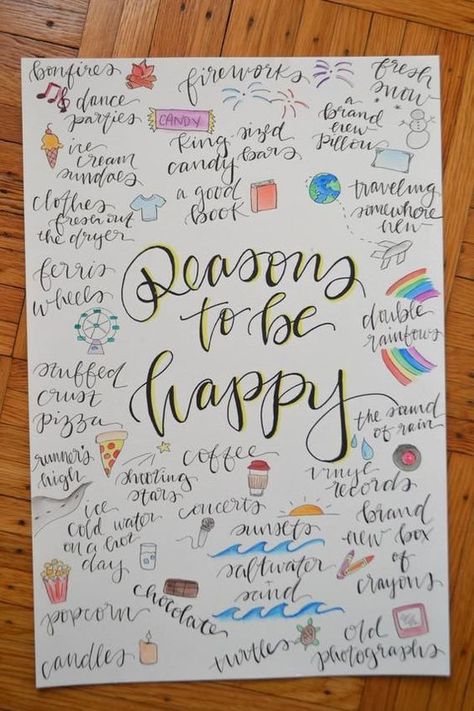 bonfires
fireworks
fresh
snow
dance
parties
CANDY
king sized
candy bars
a
brand
new
pillow
ice
cream
sundaes
a good
book
traveling
somewhere
new
clothes
fresh out
the dryer
ferris
wheels
Reasons
to be
happy
double
rainbows
stuffed
crust
pizza
the sound
of rain
runner's
high
shooting
stars
coffee
vinyl
records
ice
cold water
on a hot
day
concerts
sunsets
brand
new box
of
crayons
saltwater
sand
popcorn
chocolate
candles
turtles
old
photographs